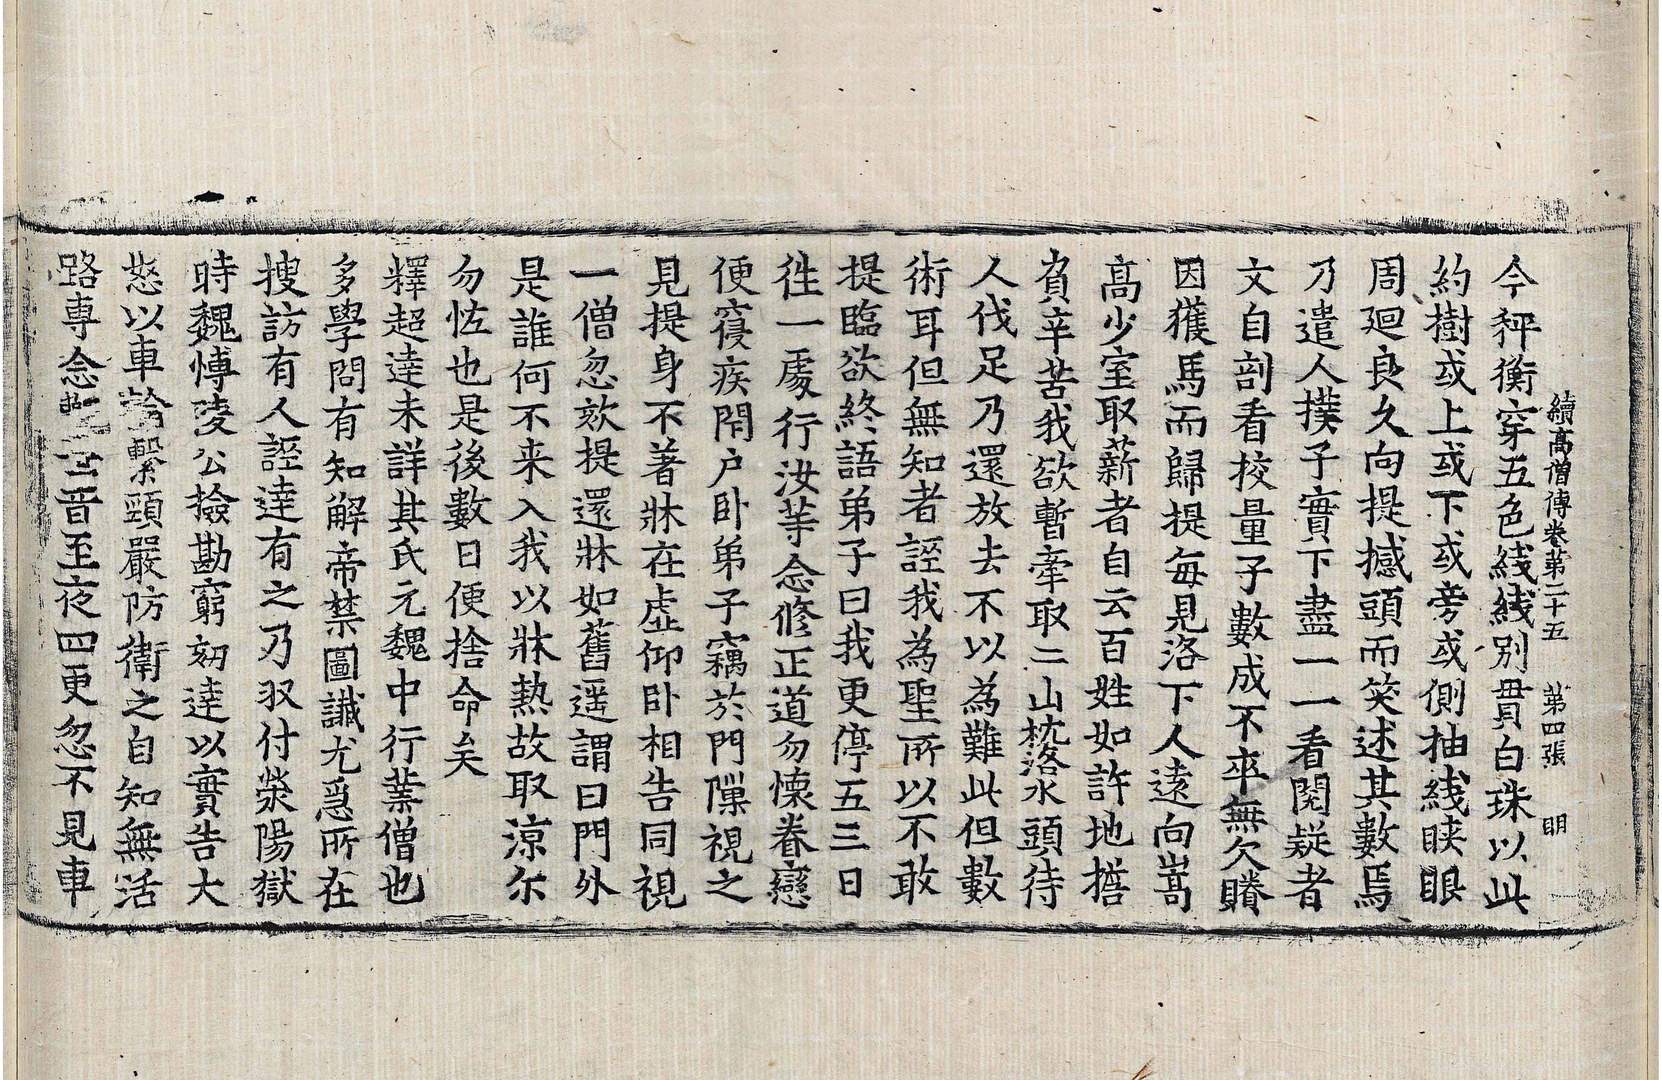 續高僧傳卷苐二十五 苐四張 明
今秤衡穿五色綫綫別貫白珠以此
約樹或上或下或旁或側抽綫䀹眼
周迴良久向提撼頭而笑述其數焉
乃遣人撲子實下盡一一看閱疑者
文自剖看校量子數成不卒無欠賸
因獲馬而歸提每見洛下人遠向嵩
高少室取薪者自云百姓如許地擔
負辛苦我欲暫牽取二山枕洛水頭待
人伐足乃還放去不以為難此但數
術耳但無知者誣我為聖所以不敢
提臨欲終語弟子曰我更停五三日
徃一處行汝等念修正道勿懷眷戀
便寢疾閇户卧弟子竊於門隟視之
見提身不著牀在虛仰卧相告同視
一僧忽欬提還牀如舊遥謂曰門外
是誰何不来入我以牀熱故取涼尓
勿恠也是後數日便捨命矣
釋超達未詳其氏元魏中行業僧也
多學問有知解帝禁圖讖尤急所在
搜訪有人誣達有之乃収付滎陽獄
時魏博陵公撿勘窮劾達以實告大
怒以車輪繫頸嚴防衛之自知無活
路專念音至夜四更忽不見車